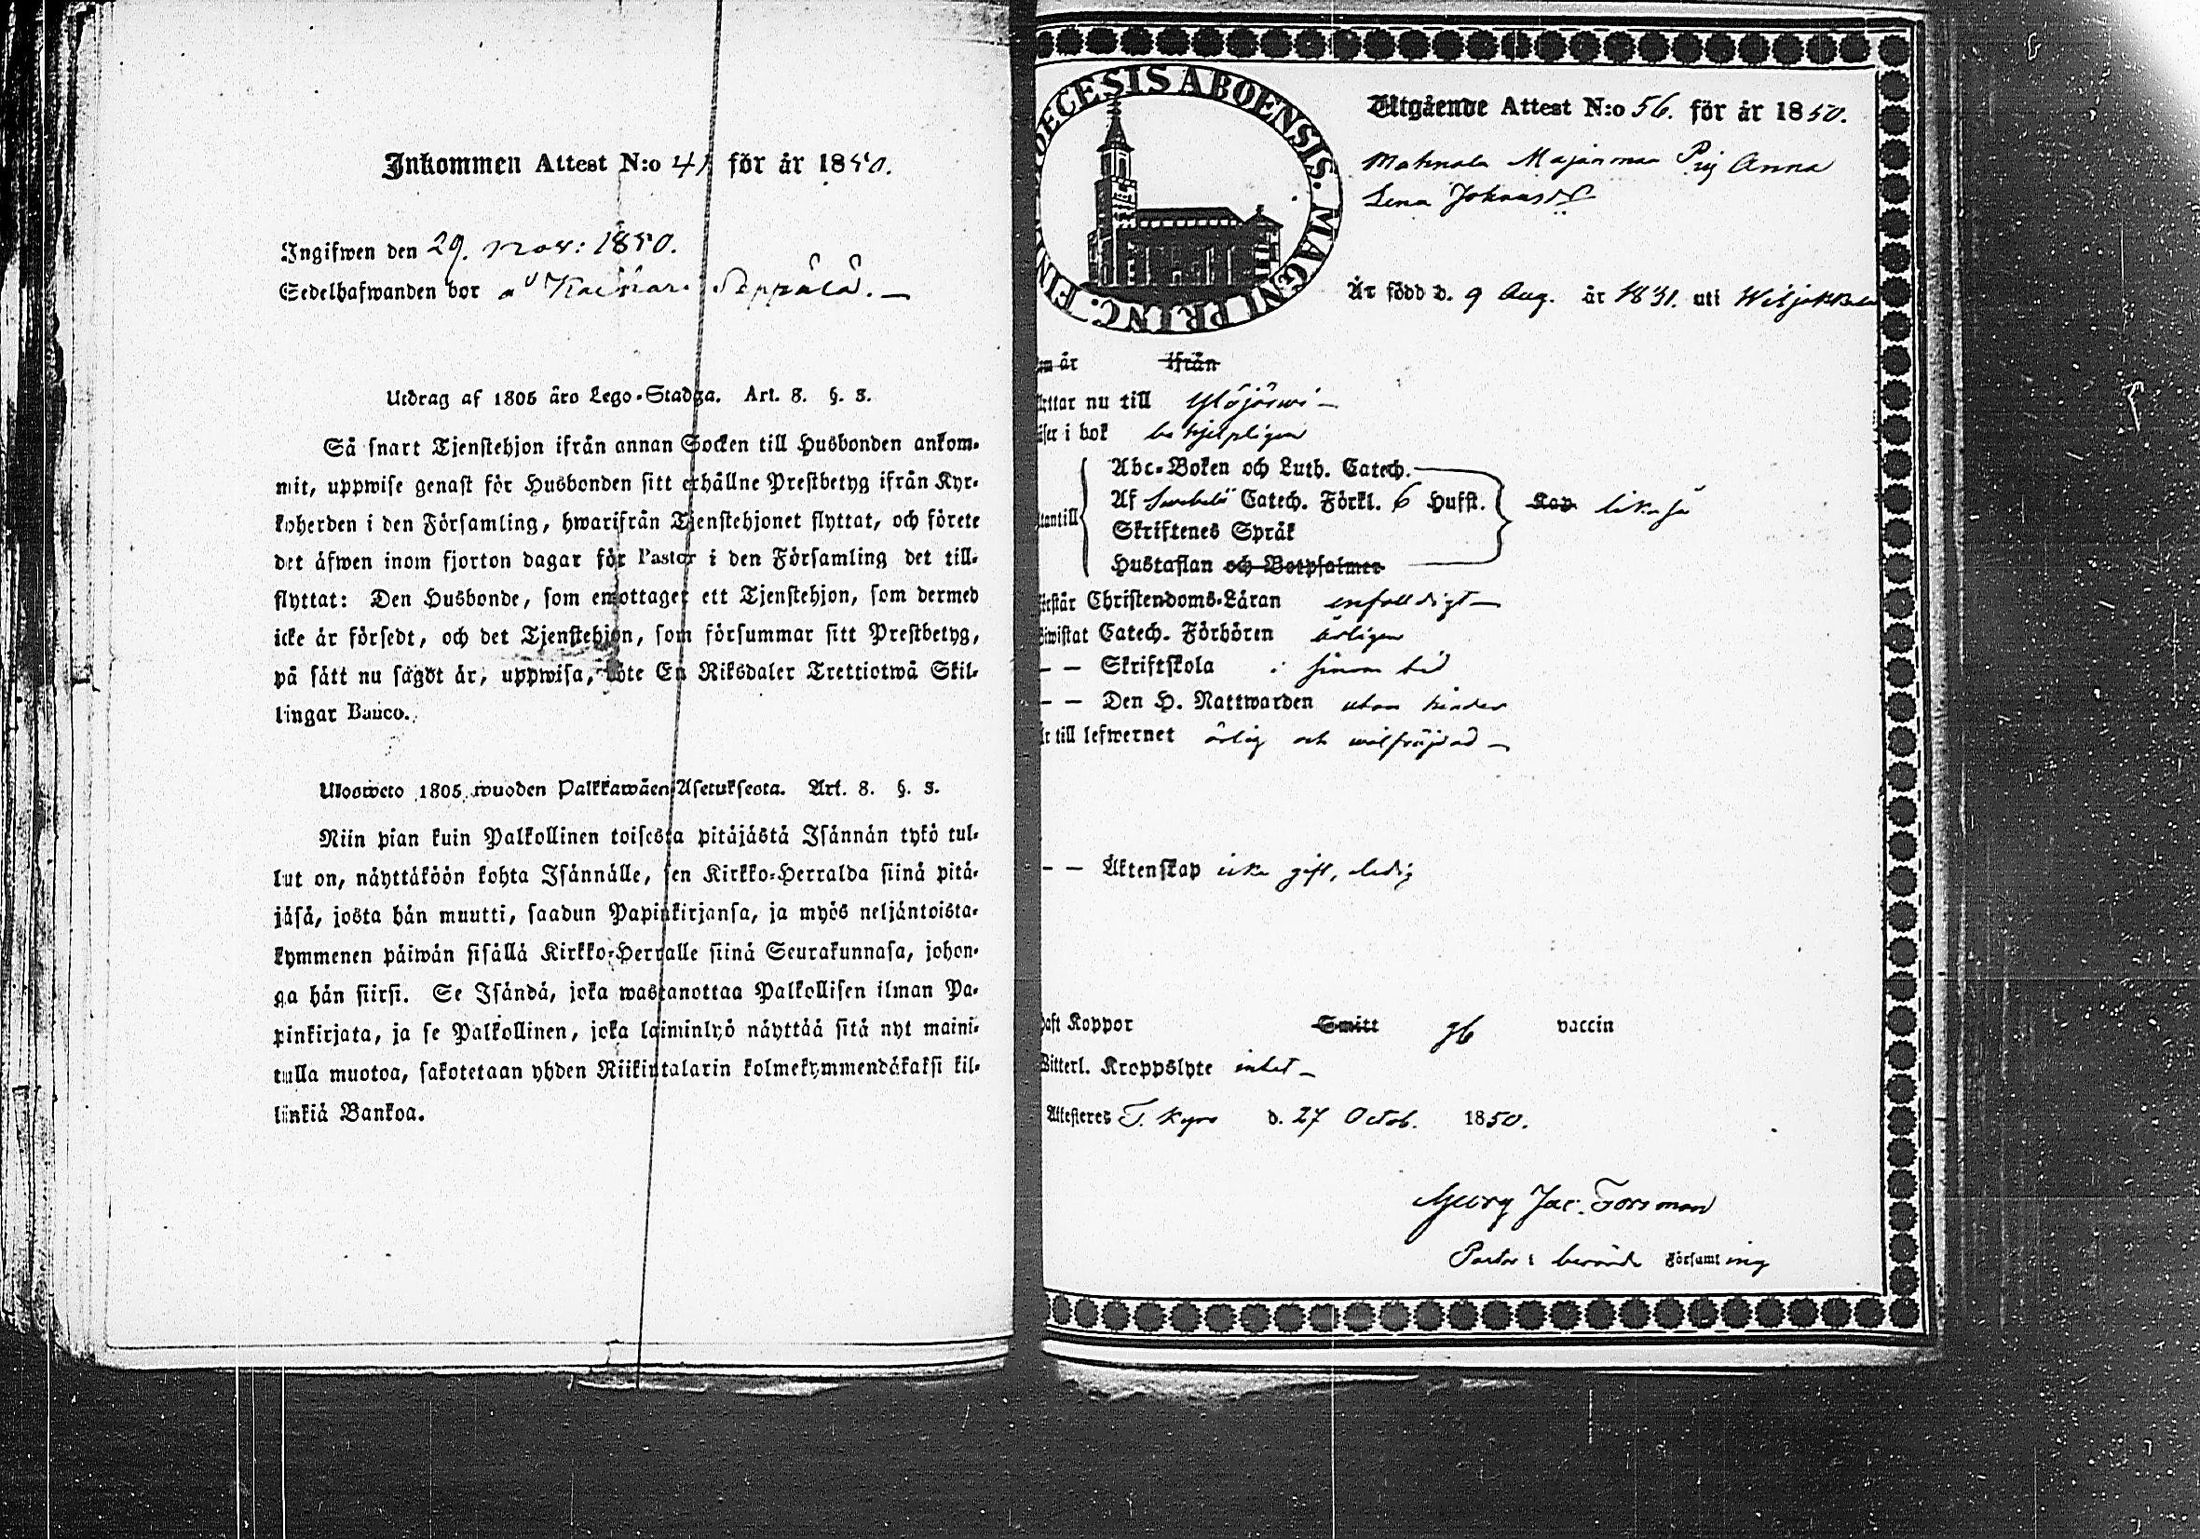 Inkommen Attest N:o 41 för år 1850.
Ingifwen den 29. nov: 1850.
Sedelhafwanden bor å Kaihari Seppälä. —
Utdrag af 1805 åro Lego-Stadga. Art. 8. §. 3.
Så snart Tjenstehjon ifrån annan Socken till Husbonden ankom-
mit, uppwise genast för Husbonden sitt erhållne Prestbetyg ifrån Kyr-
koherden i den Församling, hwarifrån Tjenstehjonet flyttat, och förete
det åfwen inom fjorton dagar för Pastor i den Församling det till-
flyttat: Den Husbonde, som emottager ett Tjenstehjon, som dermed
icke år försedt, och det Tjenstehjon, som försummar sitt Prestbetyg,
på sått nu sagdt år, uppwisa, böte En Riksdaler Trettiotwå Skil-
lingar Banco.
Ulosweto 1805 wuoden Palkkawåen Asetuksesta. Art. 8. §. 3.
Niin pian kuin Palkollinen toisesta pitåjåstå Isånnån tykö tul-
lut on, nåyttåköön kohta Isånnålle, sen Kirkko-Herralda siinå pitå-
jåså, josta hån muutti, saadun Papinkirjansa, ja myös neljåntoista-
kymmenen påiwån sisållå Kirkko-Herralle siinå Seurakunnasa, johon-
ga hån siirsi. Se Isåndå, joka wastanottaa Palkollisen ilman Pa-
pinkirjata, ja se Palkollinen, joka laiminlyö nåyttåå sitå nyt maini-
tulla muotoa, sakotetaan yhden Riikintalarin kolmekymmendåkaksi kil-
linkiå Bankoa.
DIECESIS ABOENSIS. MAGNI PRINC. FIN
Utgående Attest N:o 56. för år 1850.
Mahnala Majanmaa Pig Anna
Lena Johansdr
År född d. 9 Aug. år 1831. uti Wiljakkala
år ifrån
nu till Ylöjärwi —
i bok behjelpligen
Abc-Boken och Luth. Catech.
Af Swebelii Catech. Förkl. 6 Hufst. Kap likaså
Skriftenes Språk
Hustaflan och Botpsalmer
Christendoms-Låran enfaldigt —
Catech. Förhören årligen
— — Skriftskola i sinom tid
— — Den H. Nattwarden utan hinder
till lefwernet ärlig och wälfräjdad —
— — Åktenskap icke gift, ledig
haft Koppor Smitt gb vaccin
Witterl. Kroppslyte intet —
Attesteres T. Kyro d. 27 Octob. 1850.
Georg Jac. Forsman
Pastor i berörde Församling